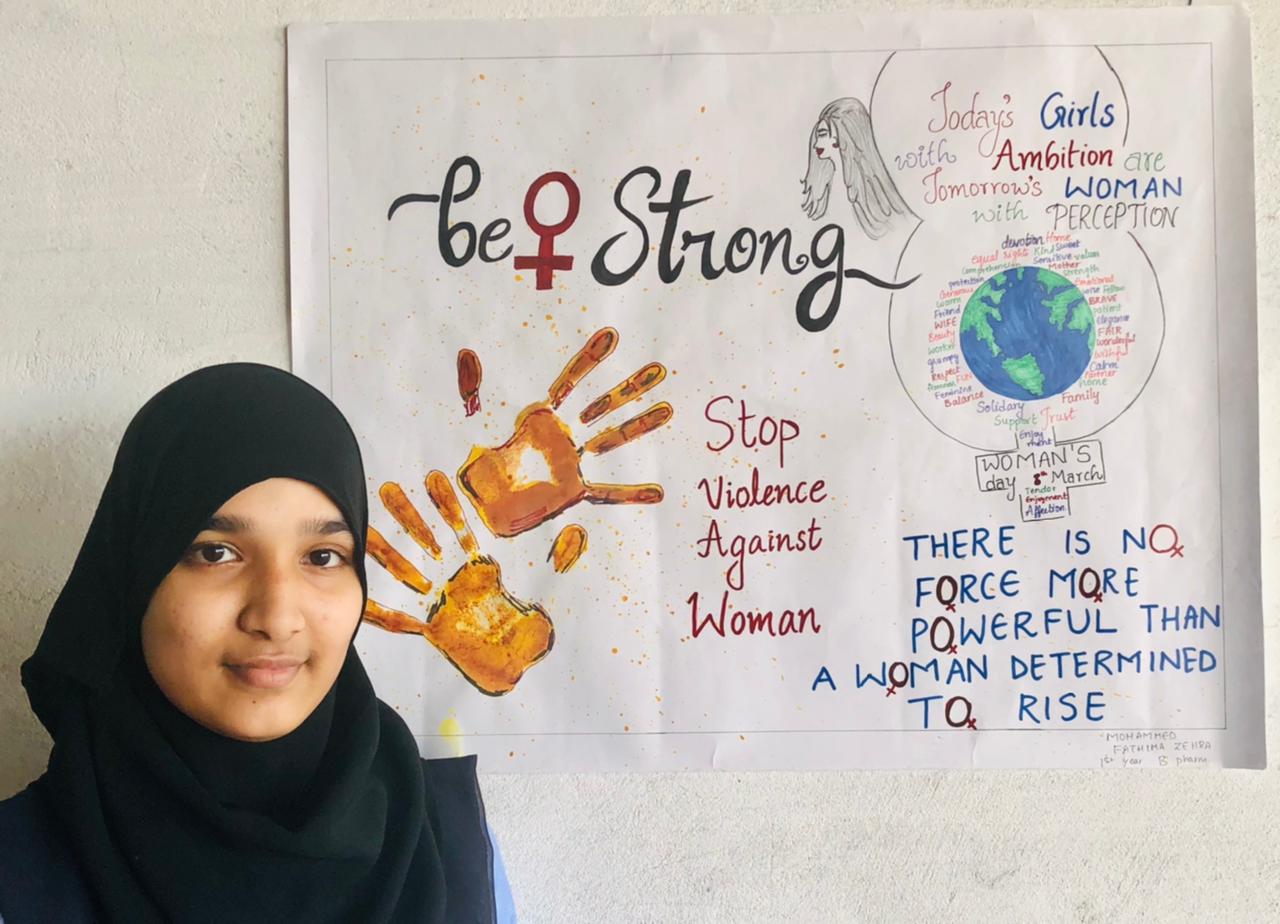 be Strong
Today's Girls
with Ambition are
Tomorrow's WOMAN
with PERCEPTION
devotion Home
equal rights Kind Sweet
Comprehension Sensitive values
Mother
protection strength
Generous Emotional
women wise Fellow
Friend BRAVE
WIFE patient
Beauty elegance
worker FAIR
grumpy wonderful
Respect FUN faithful
Calm
Feminine Partner
Balance home
Solidary Family
Support Trust
Enjoy
ment
WOMAN'S
day 8th March
Tendor
Enjoyment
Affection
Stop
Violence
Against
Woman
THERE IS NO
FORCE MORE
POWERFUL THAN
A WOMAN DETERMINED
TO RISE
MOHAMMED
FATHIMA ZEHRA
1st year B pharm